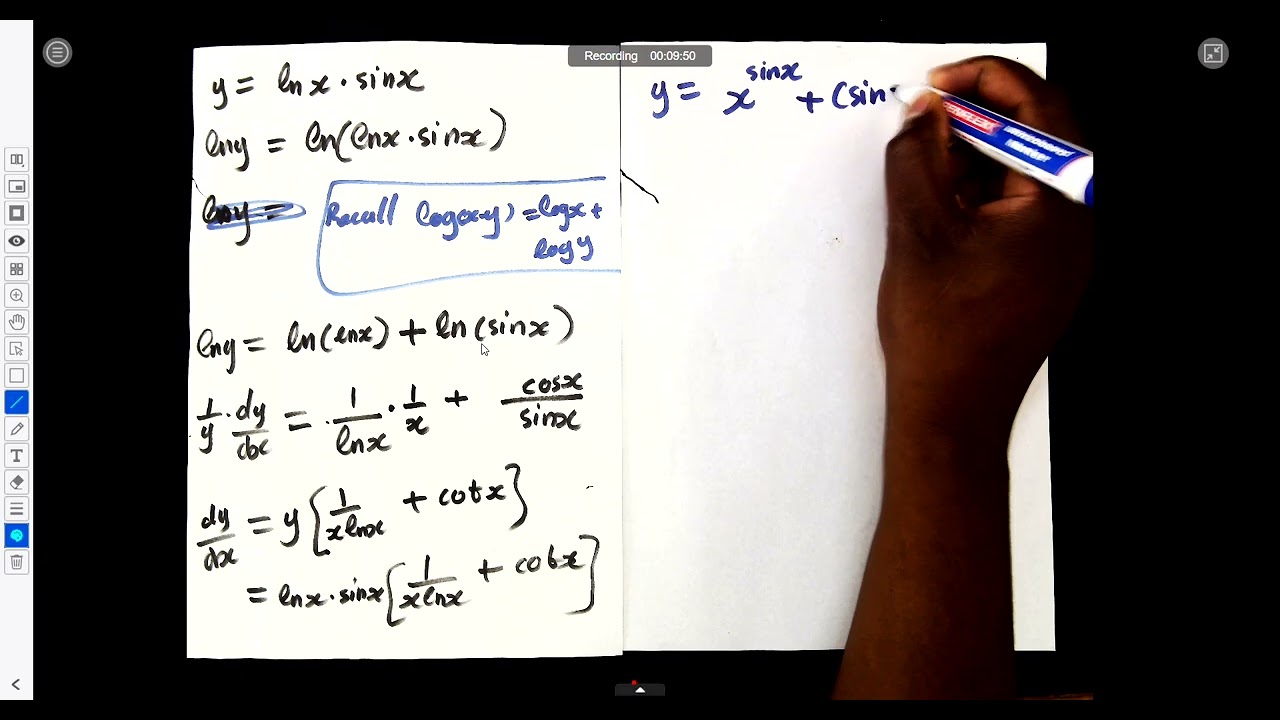 Recording 00:09:50
y = lnx · sinx
lny = ln(lnx · sinx)
lny =
Recall log(x·y) = logx +
logy
lny = ln(lnx) + ln(sinx)
1/y · dy/dx = 1/lnx · 1/x + cosx/sinx
dy/dx = y[1/xlnx + cotx]
= lnx · sinx[1/xlnx + cotx]
y = x^sinx + (sin